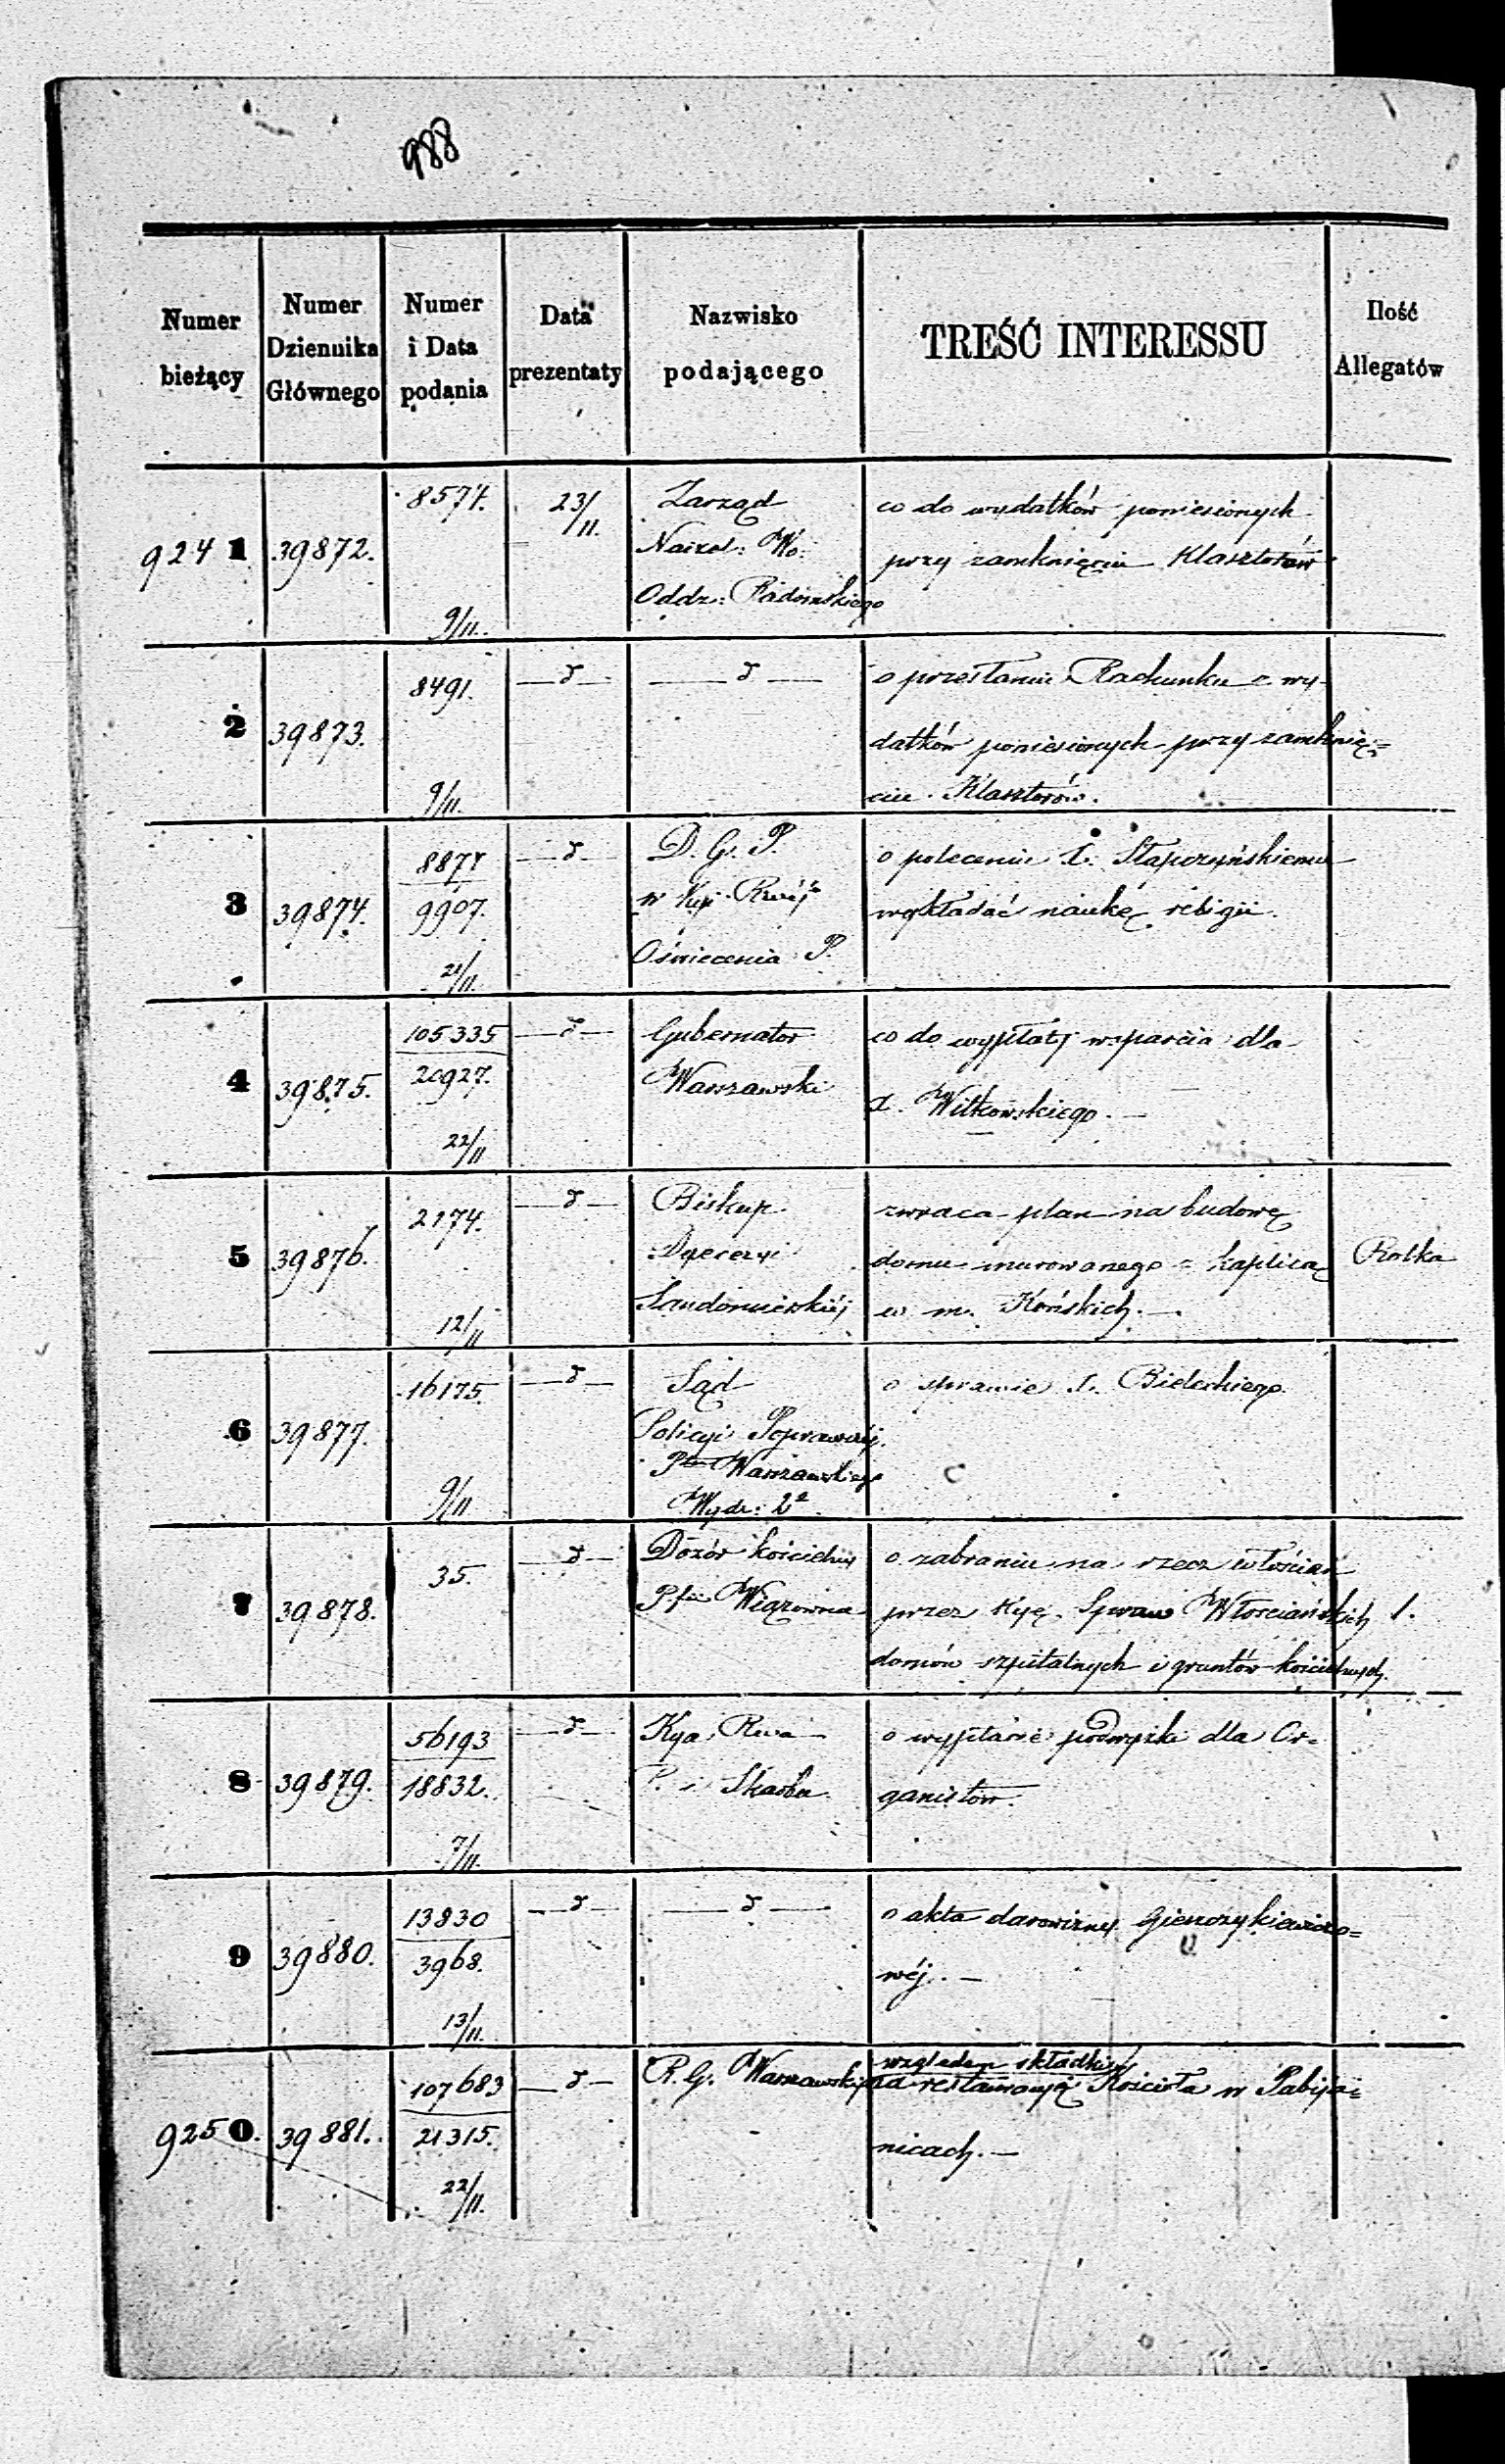 988
Numer bieżący
Numer Dziennika Głównego
Numer i Data podania
Data prezentaty
Nazwisko podającego
TREŚĆ INTERESSU
Ilość Allegatów
9241
39872.
8574.
9/11.
23/11.
Zarząd
Naczel: Wo:
Oddz: Radomskiego
co do wydatków poniesionych
przy zamknięciu Klasztorów
2
39873.
8491.
9/11.
o przesłanie Rachunku z wy-
datków poniesionych przy zamknię=
ciu Klasztorów.
3
39874.
9907.
21/11.
D. G. P.
Oświecenia P.
o polecenie X. Słapczyńskiemu
wykładać naukę religii.
4
39875.
105335
20927.
22/11
Gubernator
Warszawski
co do wypłaty wsparcia dla
X. Witkowskiego.
5
39876.
2174.
12/11
Biskup
Dyecezyi
Sandomierskiéj
zwraca plan na budowę
domu murowanego z kaplicą
w m. Końskich.
Rolka
6
39877.
16175.
9/11
Sąd
Policyi Poprawczéj
Ptu Warszawskiego
Wydz: 2º
o sprawie X. Bieleckiego.
7
39878.
35.
Dozór kościelny
Pfii Wiązowna
o zabraniu na rzecz włościan
przez Kyę Spraw Włościańskich
domów szpitalnych i gruntów kościelnych.
1.
8
39879.
56193
18832.
7/11.
Kya Rwa
P. i Skarbu
o wypłacie podwyżki dla Or-
ganistów.
9
39880.
13830
3968.
13/11.
o akta darowizny
wéj.
9250.
39881.
107683
21315.
22/11.
R. G. Warszawski
względem składki
na restauracyę Kościoła w Pabija=
nicach.